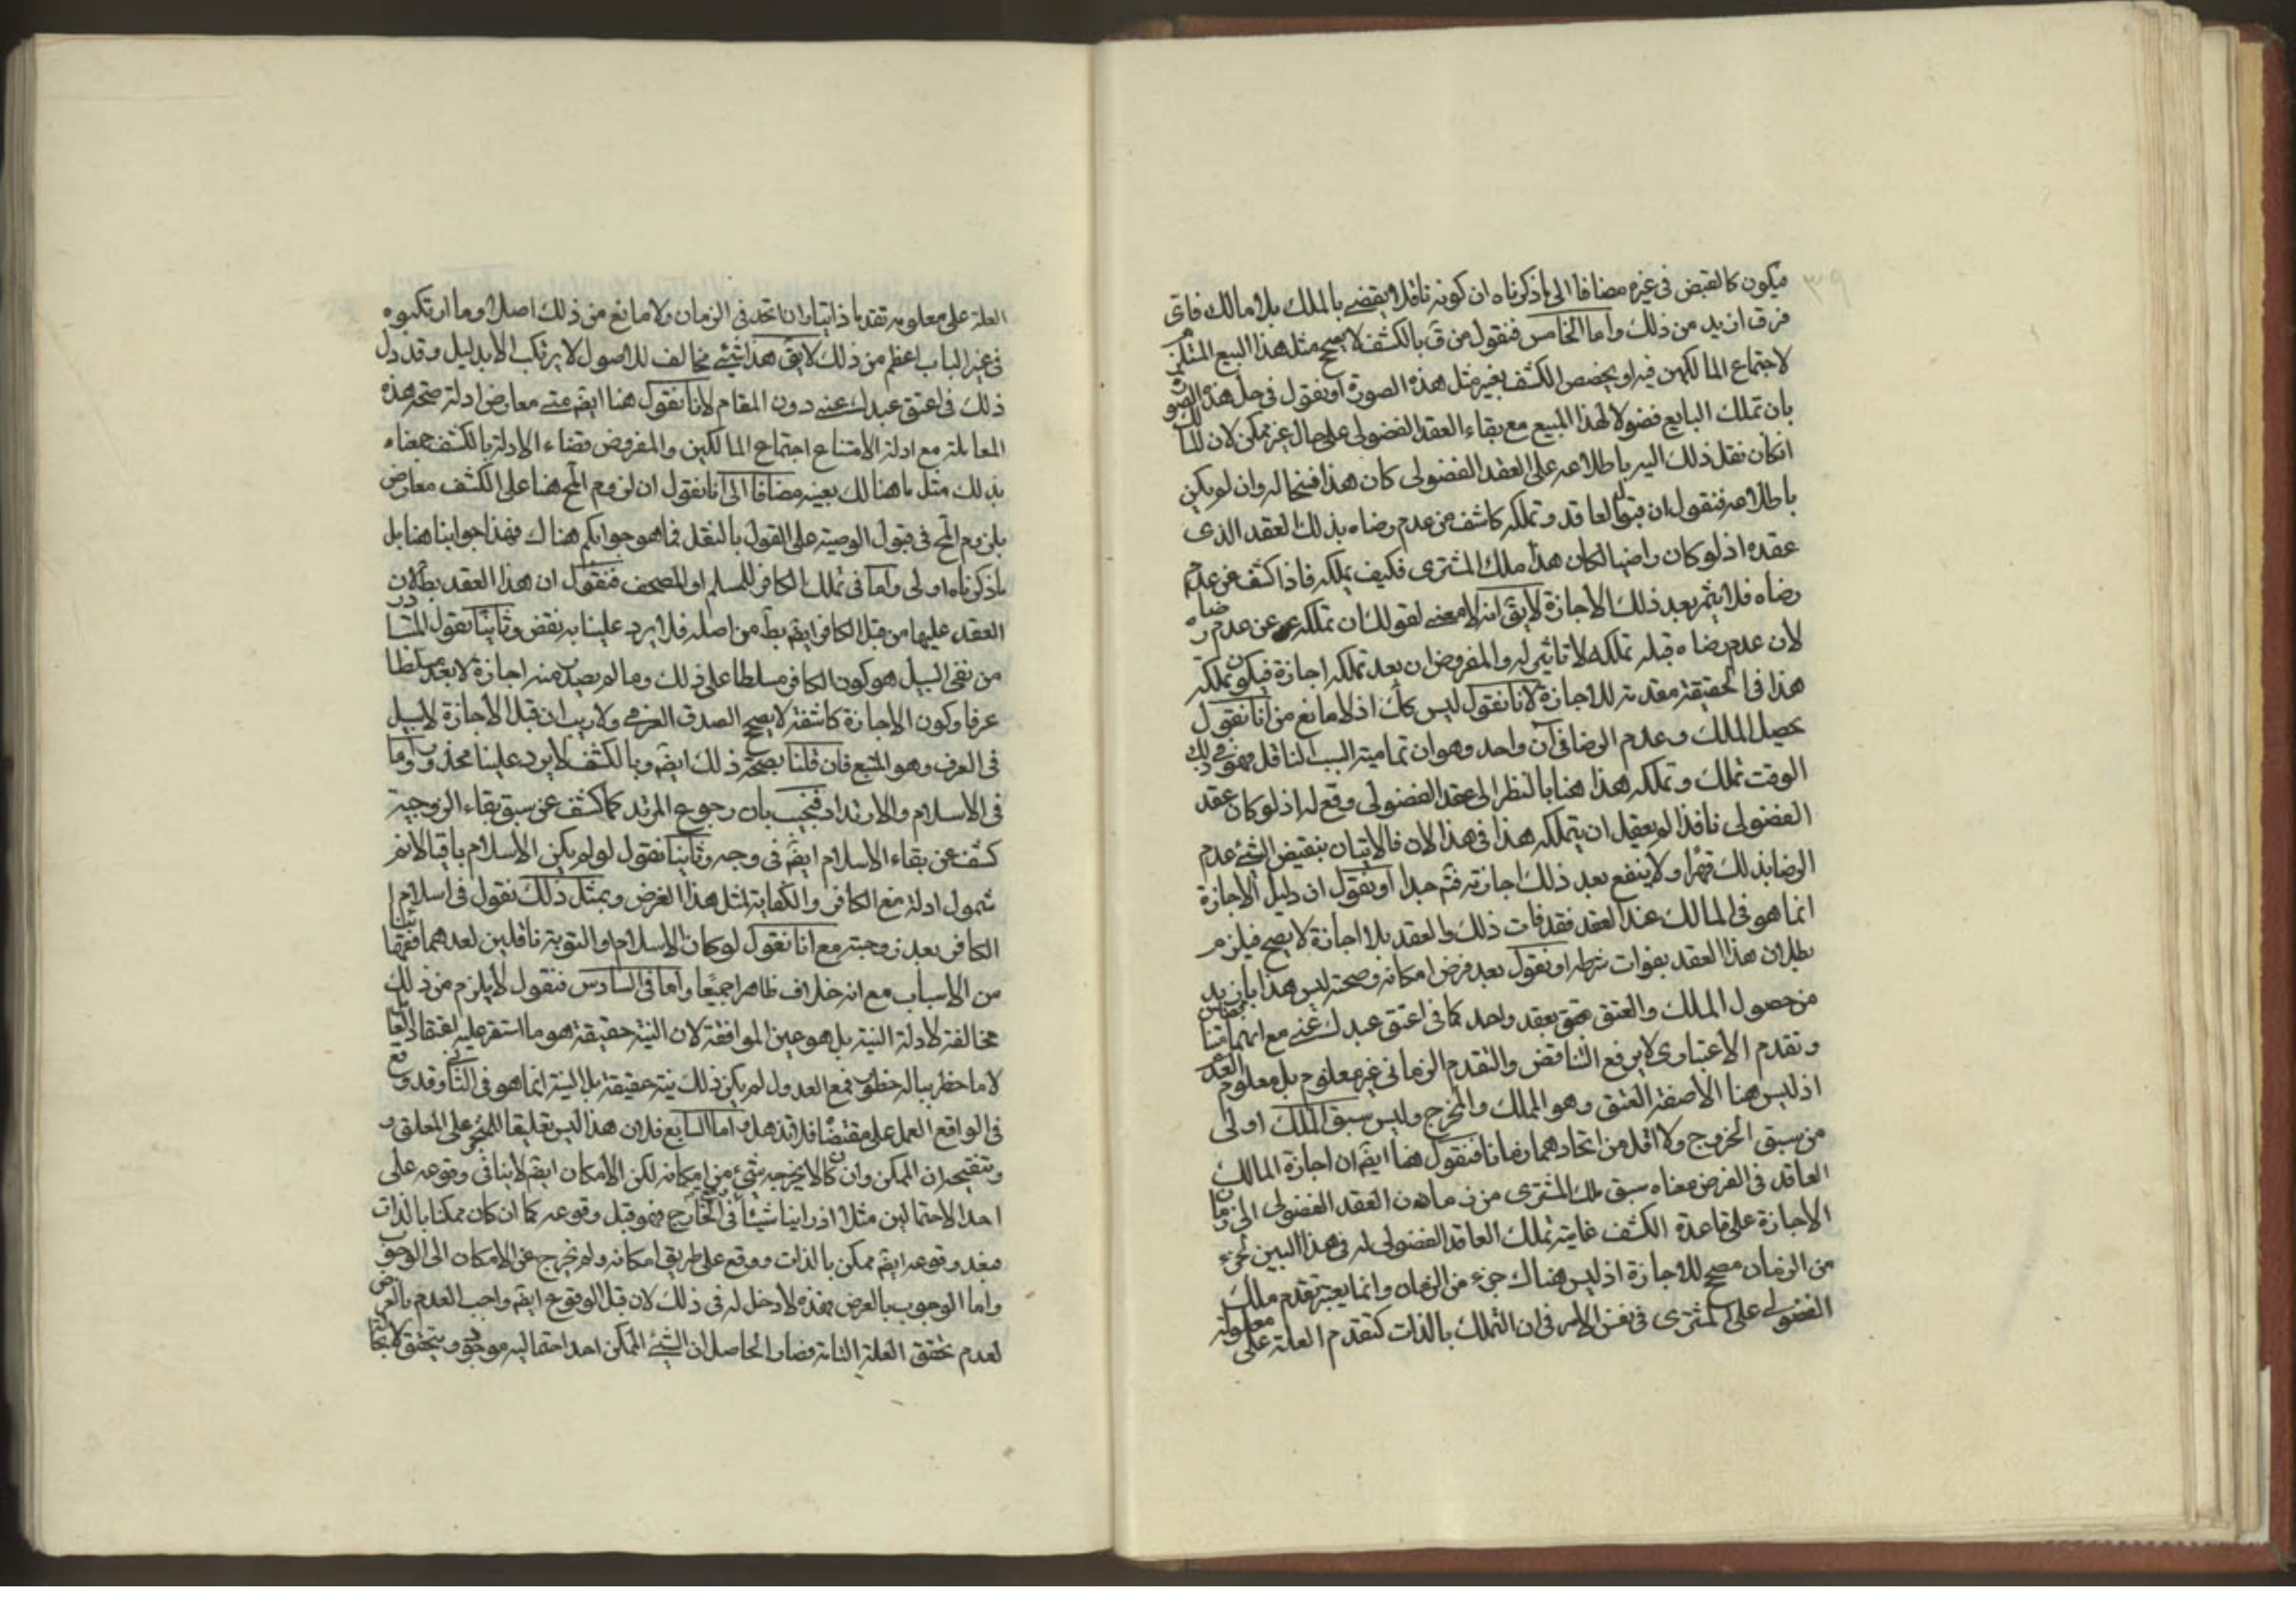 ٣٩
فيكون كالقبض في غيره مضافا الى ما ذكرناه ان كونه ناقلا يقضى بالملك بلا مالك فاى
فرق ازيد من ذلك واما الخامس فنقول من ق بالكشف لا يصح مثل هذا البيع المستلزم
لاجتماع المالكين فيه او يخصص الكشف بغير مثل هذه الصورة او نقول في حل هذه الصورة
بان تملك البايع فضولا لهذا المبيع مع بقاء العقد الفضولى على حال غير ممكن لان المالك
انكان نقل ذلك اليه باطلاعه على العقد الفضولى كان هذا فسخا له وان لم يكن
باطلاعه فنقول ان قبول العاقد وتملكه كاشف عن عدم رضاه بذلك العقد الذى
عقده اذ لو كان راضيا لكان هذا ملك المشترى فكيف يملكه فاذا كشف عن عدم
رضاه فلا يثمر بعد ذلك الاجازة لا يق انه لا معنى لقولك ان تملكه عن عدم رضاه
لان عدم رضاه قبل تملكه لا تاثير له والمفروض ان بعد تملكه اجازة فيكون تملكه
هذا في الحقيقة مقدمة للاجازة لانا نقول ليس كك اذ لا مانع من انا نقول
بحصول الملك وعدم الرضا في آن واحد وهو ان تمامية السبب الناقل فهو في ذلك
الوقت تملك وتملكه هذا هنا بالنظر الى عقد الفضولى وقع له اذ لو كان عقد
الفضولى نافذا لم يعقل ان يتملكه هذا في هذا الان فالاتيان بنقيض الشئ عدم
الرضا بذلك قهرا ولا ينفع بعد ذلك اجازته فتم جدا او نقول ان دليل الاجازة
انما هو في المالك عند العقد فقد فات ذلك والعقد بلا اجازة لا يصح فيلزم
بطلان هذا العقد بفوات شرطه او نقول بعد فرض امكانه وصحته ليس هذا بازيد
من حصول الملك والعتق بعقد واحد كما في اعتق عبدك عنى مع انهما متناقضان
وتقدم الاعتبارى لا يرفع التناقض والتقدم الزمانى غير معلوم بل معلوم العدم
اذ ليس هنا الا صفة العتق وهو الملك والمخرج وليس سبق الملك اولى
من سبق الخروج ولا اقل من اتحادهما زمانا فنقول هنا ايضم ان اجازة المالك
العاقد في الفرض معناه سبق ملك المشترى من زمان العقد الفضولى الى زمان
الاجازة على قاعدة الكشف غايته تملك العاقد الفضولى له في هذا البين لجزء
من الزمان مصحح للاجازة اذ ليس هناك جزء من الزمان وانما يعتبر تقدم ملك
الفضولى على المشترى في نفس الامر في ان التملك بالذات كتقدم العلة على معلوله
العلة على معلوله تقدما ذاتيا وان اتحد في الزمان ولا مانع من ذلك اصلا وما ارتكبوه
في غير الباب اعظم من ذلك لا يق هذا شئ مخالف للاصول لا يرتكب الا بدليل وقد دل
ذلك في اعتق عبدك عنى دون المقام لانا نقول هنا ايضم متى معارض ادلة صحة هذه
المعاملة مع ادلة الامتناع اجتماع المالكين والمفروض قضاء الادلة بالكشف فمعناه
بذلك مثل ما هنالك بعينه مضافا الى انا نقول ان لزوم المح هنا على الكشف معارض
بلزوم المح في قبول الوصية على القول بالنقل فما هو جوابكم هناك فهذا جوابنا هنا بل
ما ذكرناه اولى واما في تملك الكافر للمسلم او المصحف فنقول ان هذا العقد بطلان
العقد عليها من قبل الكافر ايضم بط من اصله فلا يرد علينا به نقض وثانيا نقول المتبادر
من نفى السبيل هو كون الكافر مسلطا على ذلك وما لم يصدر منه اجازة لا يعد مسلطا
عرفا وكون الاجازة كاشفة لا يصحح الصدق العرفى ولا ريب ان قبل الاجازة لا سبيل
في العرف وهو المتبع فان قلنا بصحة ذلك ايضم وبالكشف لا يرد علينا محذور واما
في الاسلام والارتداد فنجيب بان رجوع المرتد كما كشف عن سبق بقاء الزوجية
كشف عن بقاء الاسلام ايضم في وجه وثانيا نقول لو لم يكن الاسلام باقيا لا نم
شمول ادلة منع الكافر والكفاية لمثل هذا الفرض وبمثل ذلك نقول في اسلام
الكافر بعد زوجته مع انا نقول لو كان الاسلام او التوبة ناقلين لعدهما فقهائنا
من الاسباب مع انه خلاف ظاهرا جميعا واما في السادس فنقول لا يلزم من ذلك
مخالفة لادلة النية بل هو عين الموافقة لان النية حقيقة هو ما استقر عليه اعتقاد العاقد
لا ما خطر بباله خطور فمع العدول لم يكن ذلك نية حقيقة بل النية انما هو في الثانى وقد وقع
في الواقع العمل على مقتضاه فلا تذهل واما السابع فلان هذا ليس تعليقا للمنجز على المعلق و
وتنقيحه ان الممكن وان كان لا يخرجه شئ من امكانه لكن الامكان ايضم لا ينافى وقوعه على
احد الاحتمالين مثلا اذ راينا شيئا في الخارج فهو قبل وقوعه كما ان كان ممكنا بالذات
فبعد وقوعه ايضم ممكن بالذات ووقع على طريق امكانه ولم يخرج عن الامكان الى الوجوب
واما الوجوب بالعرض فهذه لا دخل له في ذلك لان قبل الوقوع ايضم واجب العدم بالعرض
لعدم تحقق العلة التامة فصار الحاصل ان الشئ الممكن احد احتماليه موجود ويتحقق لا محالة